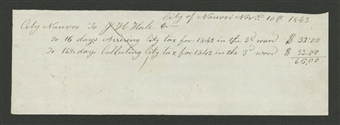 City of Nauvoo Nov. 10th 1843
City Nauvoo To J H Hale
To 16 days Assessing City tax for 1843 in the 3d ward $ 32.00
To 16½ days Collecting City tax for 1843 in the 3d ward $ 33.00
65,00